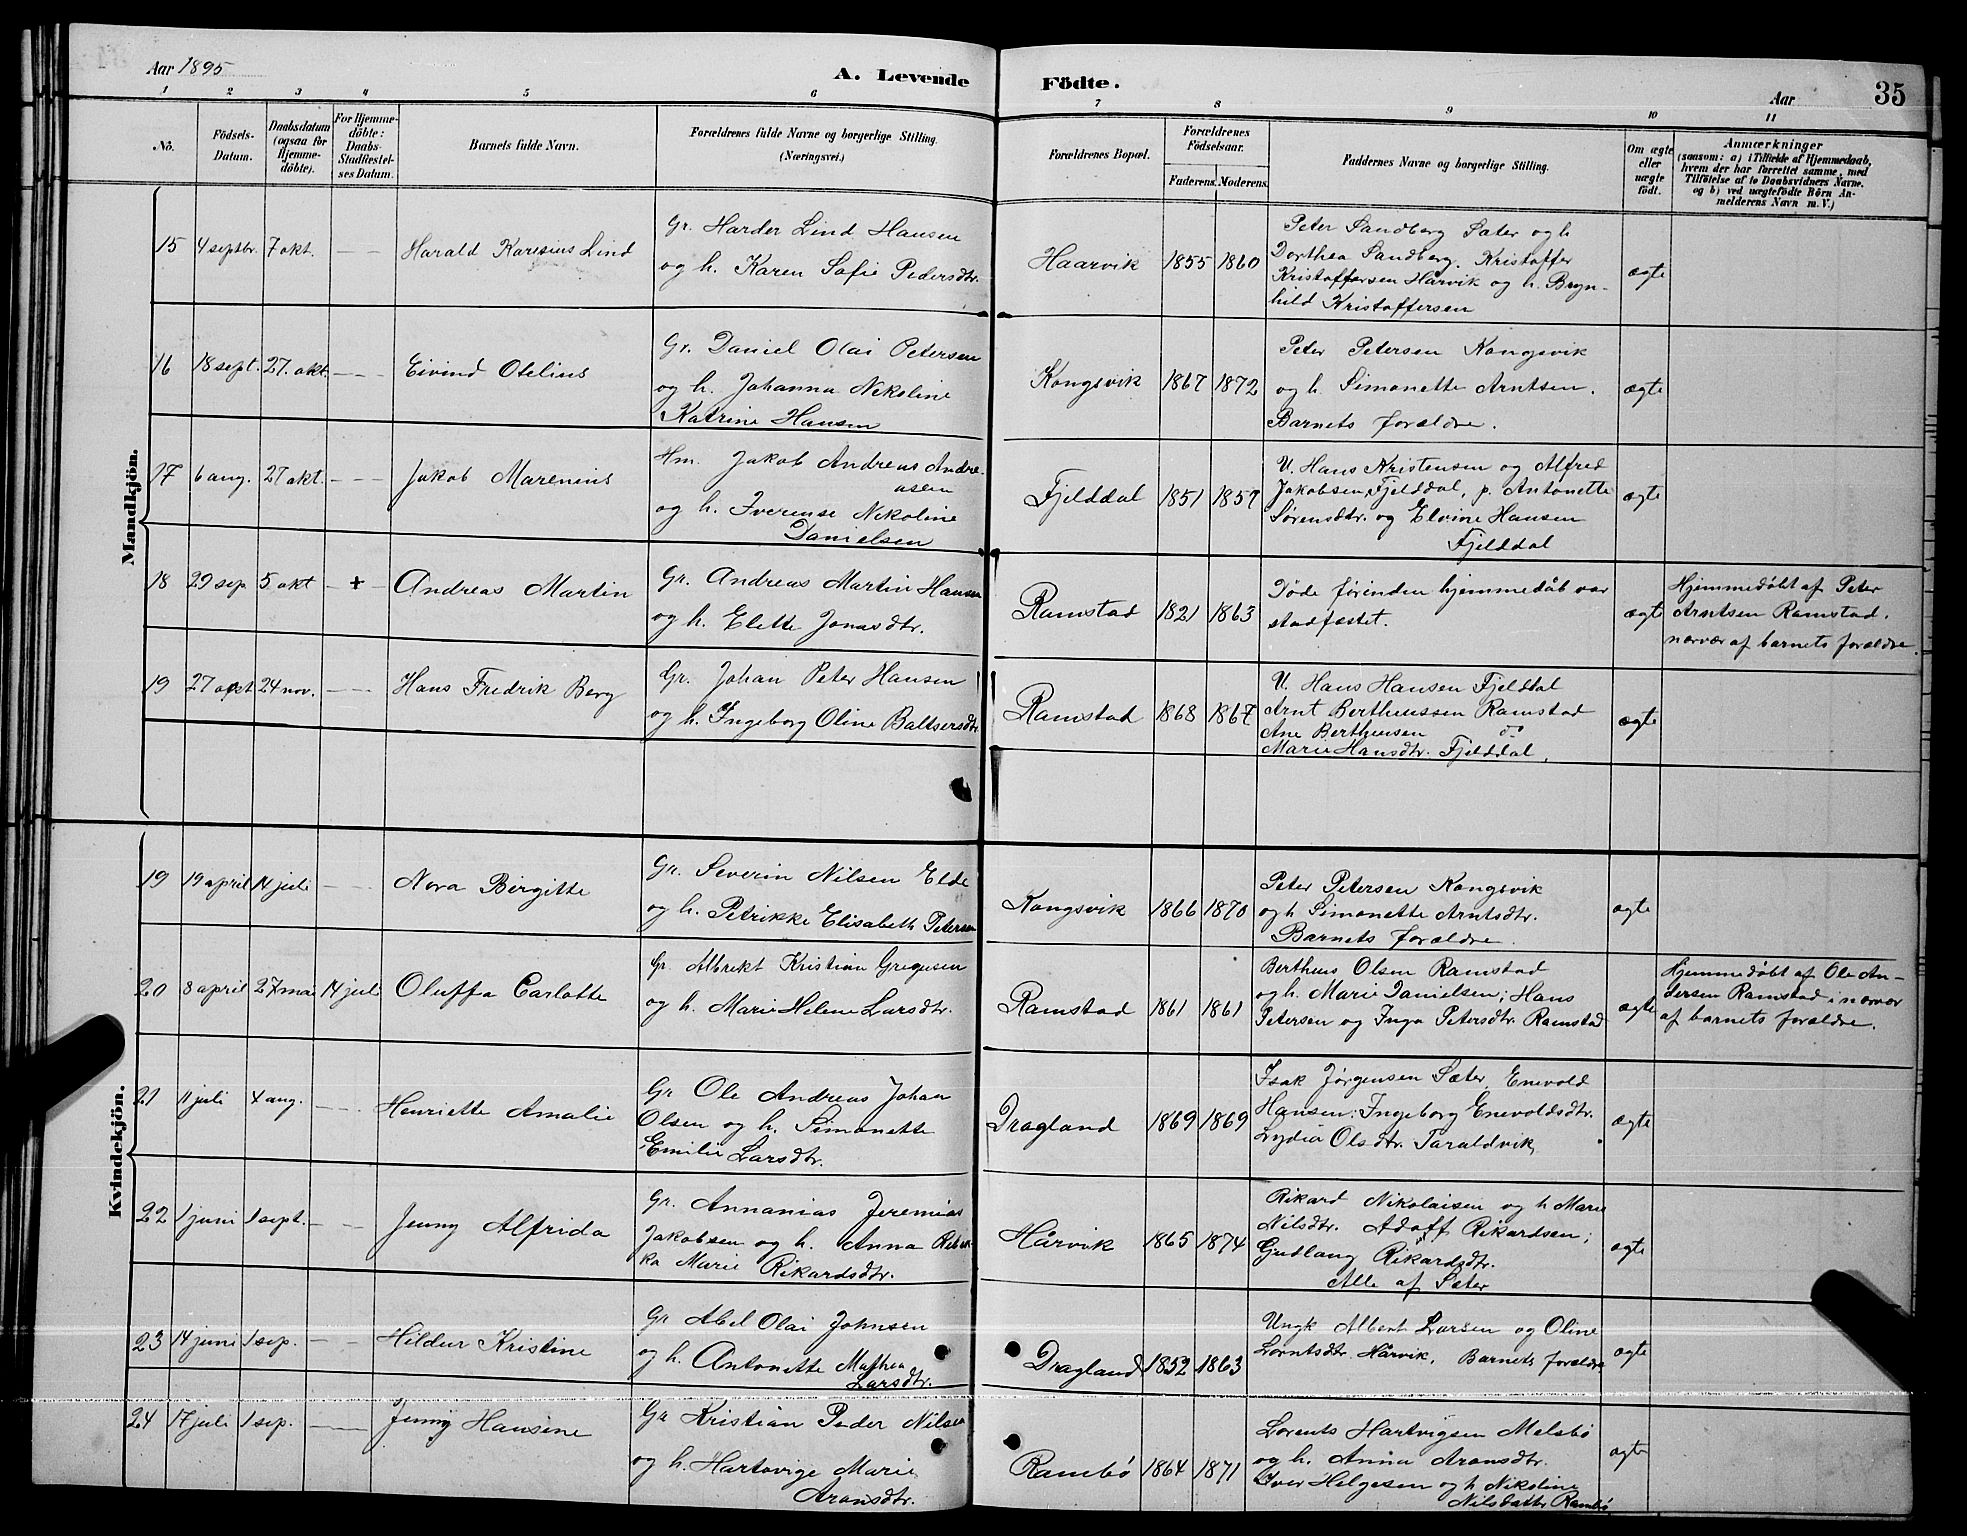 Aar 1895
A. Levende Födte.
Aar
35
1 2 3 4 5 6 7 8 9 10 11
Nö.
Födsels-
Datum.
Daabsdatum
(ogsaa for
Hjemme-
döbte).
For Hjemme-
döbte:
Daabs-
Stadfæstel-
ses Datum.
Barnets fulde Navn.
Forældrenes fulde Navne og borgerlige Stilling.
(Næringsvei.)
Forældrenes Bopæl.
Forældrenes
Födselsaar.
Faderens. Moderens.
Faddernes Navne og borgerlige Stilling.
Om ægte
eller
uægte
födt.
Anmærkninger
(saasom: a) i Tilfælde af Hjemmedaab,
hvem der har forrettet samme, med
Tilföielse af to Daabsvidners Navne,
og b) ved uægtefödte Börn An-
melderens Navn m. V.)
Mandkjön.
15 4 septbr. 7 okt. — — Harald Karesius Lind
Gr. Harder Lind Hansen
og h. Karen Sofie Pedersdtr.
Haarvik 1855 1860
Peter Sandberg Sæter og h
Dorthea Sandberg. Kristoffer
Kristoffersen Hårvik og h. Bryn-
hild Kristoffersen
ægte
16 18 sept. 27. okt. — — Eivind Otelius
Gr. Daniel Olai Petersen
og h. Johanna Nikoline
Katrine Hansen
Kongsvik 1867 1872
Peter Petersen Kongsvik
og h. Simonette Arntsen.
Barnets forældre.
ægte
17 6 aug. 27 okt. — — Jakob Marenius
Hm. Jakob Andreas Andre-
asen
og h. Iverense Nikoline
Danielsen
Fjelddal 1851 1857
U. Hans Kristensen og Alfred
Jakobsen, Fjelddal, p. Antonette
Sørensdtr. og Elvine Hansen
Fjelddal
ægte
18 29 sep. 5 okt — + — Andreas Martin
Gr. Andreas Martin Hansen
og h. Elette Jonasdtr.
Ramstad 1821 1863
Døde førinden hjemmedåb var
stadfæstet.
ægte
Hjemmedøbt af Peter
Arntsen Ramstad.
nærvær af barnets forældre.
19 27 okt 24 nov. — — Hans Fredrik Berg
Gr. Johan Peter Hansen
og h. Ingeborg Oline Baltsersdtr
Ramstad 1868 1867
U. Hans Hansen Fjelddal
Arnt Bertheussen Ramstad
Ane Bertheusen do
Marie Hansdtr. Fjelddal.
ægte
Kvindekjön.
19 19 april 14 juli — — Nora Birgitte
Gr. Severin Nilsen Elde
og h. Petrikke Elisabeth Petersen
Kongsvik 1866 1870
Peter Petersen Kongsvik
og h Simonette Arntsdtr.
Barnets forældre.
ægte
20 8 april 27 mai 14 juli Oluffa Carlotte
Gr. Albrekt Kristian Gregusen
og h. Marie Helene Larsdtr.
Ramstad 1861 1861
Bertheus Olsen Ramstad
og h. Marie Danielsen; Hans
Petersen og Inga Petersdtr Ramstad
ægte
Hjemmedøbt af Ole An-
dersen Ramstad i nærvær
af barnets forældre.
21 11 juli 4 aug. — — Henriette Amalie
Gr Ole Andreas Johan
Olsen og h. Simonette
Emilie Larsdtr.
Dragland 1869 1869
Isak Jørgensen Sæter, Enevold
Hansen; Ingeborg Enevoldsdtr.
Lydia Olsdtr. Taraldvik,
ægte
22 1 juni 1 sept. — — Jenny Alfrida
Gr. Annanias Jeremias
Jakobsen og h. Anna Rebek-
ka Marie Rikardsdtr.
Hårvik 1865 1874
Rikard Nikolaisen og h Marie
Nilsdtr. Adolf Rikardsen;
Gudlaug Rikardsdtr.
Alle af Sæter
ægte
23 14 juni 1 sep. — — Hildur Kristine
Gr Abel Olai Johnsen
og h. Antonette Mathea
Larsdtr.
Dragland 1852 1863
Ungk Albert Larsen og Oline
Lorntsdtr. Hårvik, Barnets forældre
ægte
24 17 juli 1 sep. — Jenny Hansine
Gr Kristian Peder Nilsen
og h. Hartvige Marie
Aronsdtr.
Rambø 1864 1871
Lorents Hartvigsen Melsbø
og h. Anna Aronsdtr.
Iver Helgesen og h Nikoline
Nilsdattr Rambø
ægte